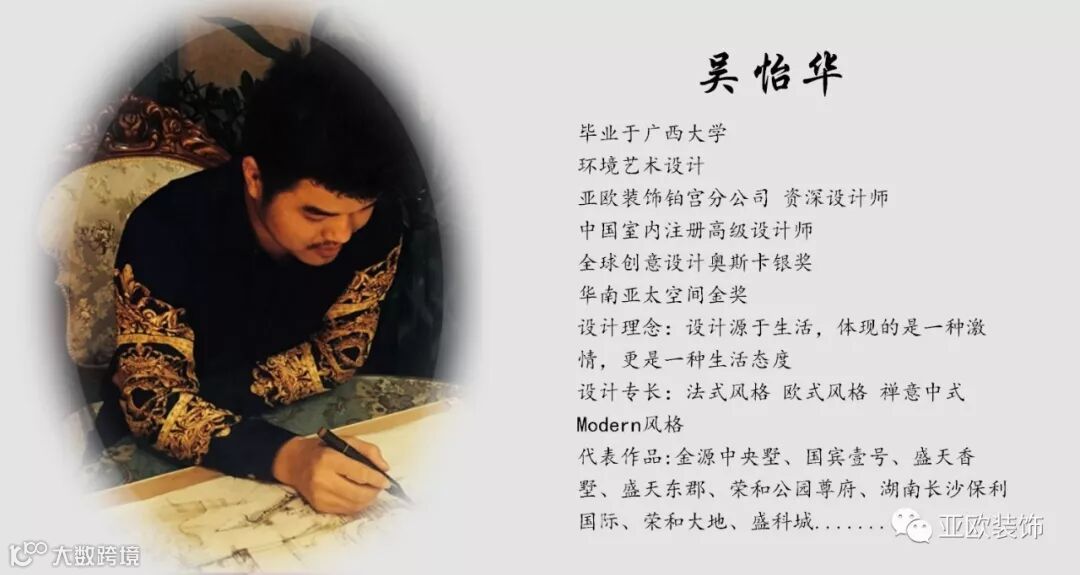 吴怡华
毕业于广西大学
环境艺术设计
亚欧装饰铂宫分公司 资深设计师
中国室内注册高级设计师
全球创意设计奥斯卡银奖
华南亚太空间金奖
设计理念：设计源于生活，体现的是一种激
情，更是一种生活态度
设计专长：法式风格 欧式风格 禅意中式
Modern风格
代表作品:金源中央墅、国宾壹号、盛天香
墅、盛天东郡、荣和公园尊府、湖南长沙保利
国际、荣和大地、盛科城.......
亚欧装饰
大数跨境